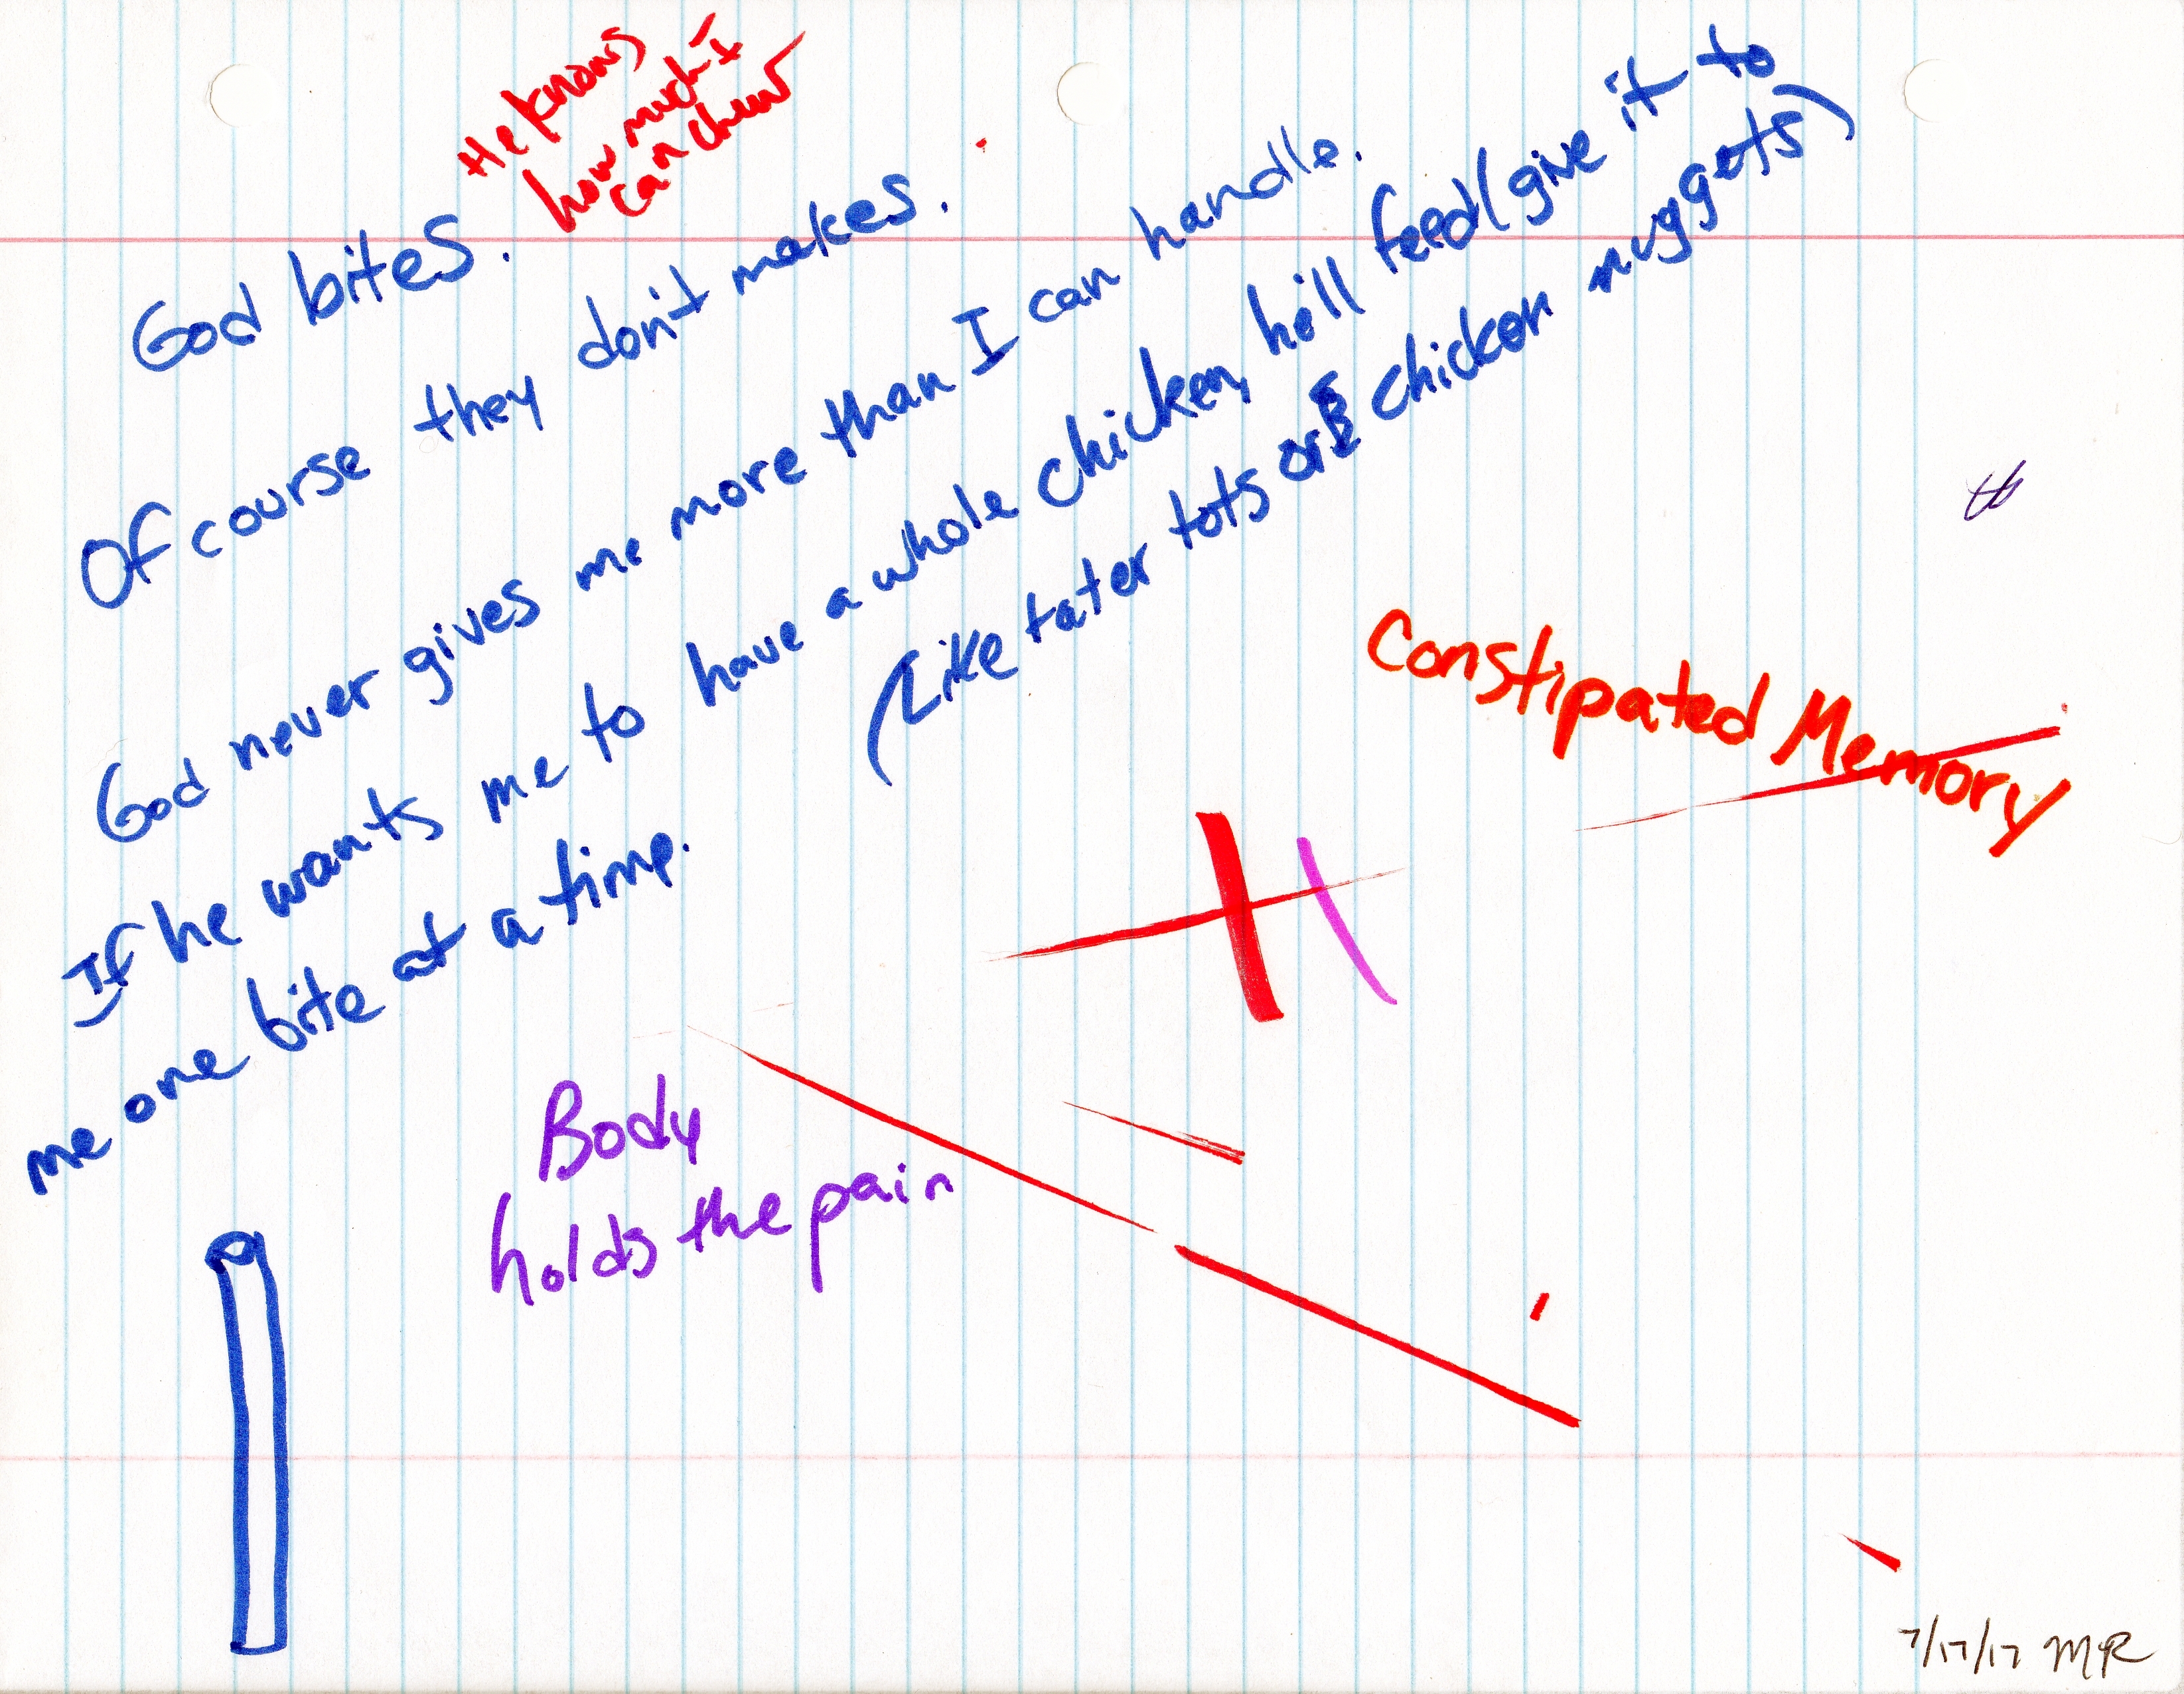 He knows
how much I
can chew
God bites.
Of course they don't makes.
God never gives me more than I can handle.
If he wants me to have a whole chicken, he'll feed (give it to
me one bite at a time.
(Like tater tots or chicken nuggets)
Constipated Memory
Body
holds the pain
7/17/17 MR